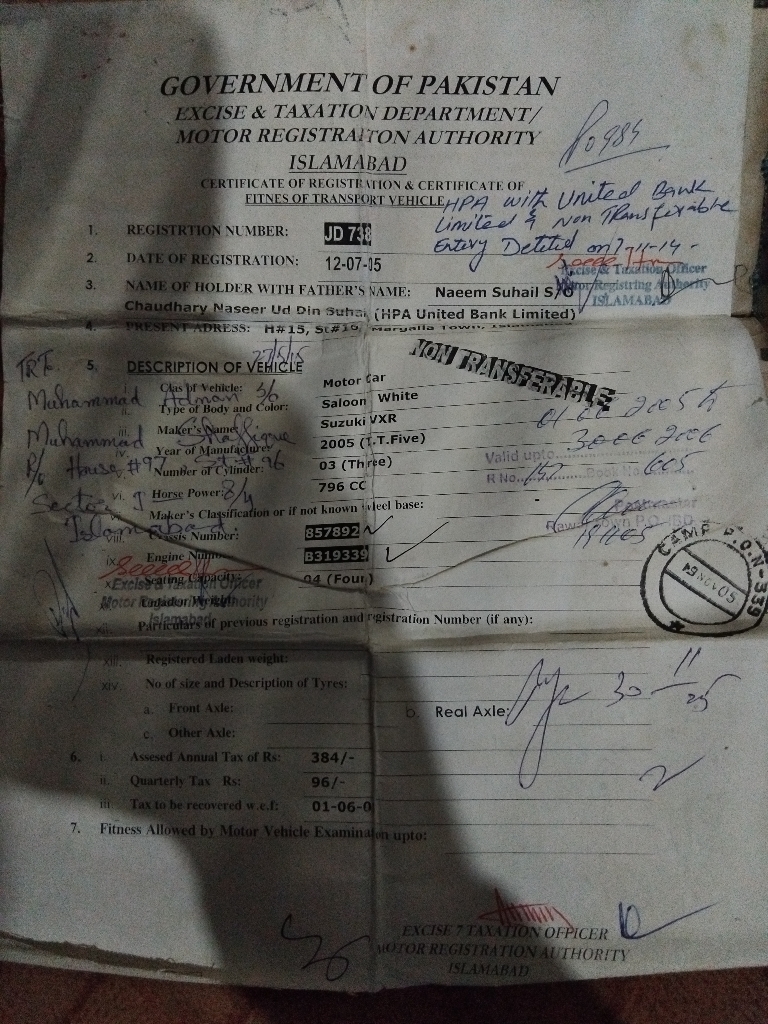 GOVERNMENT OF PAKISTAN
EXCISE & TAXATION DEPARTMENT/
MOTOR REGISTRAITON AUTHORITY
ISLAMABAD
CERTIFICATE OF REGISTRATION & CERTIFICATE OF
FITNES OF TRANSPORT VEHICLE
HPA with United Bank
Limited & Non Transferable
Entery Deteted on 7-11-14 -
1. REGISTRTION NUMBER: JD 738
2. DATE OF REGISTRATION: 12-07-05
Excise & Taxation Officer
Motor Registring Authority
ISLAMABAD
3. NAME OF HOLDER WITH FATHER'S NAME: Naeem Suhail S/O
Chaudhary Naseer Ud Din Suhai (HPA United Bank Limited)
4. PRESENT ADRESS: H#15, St#16, Margalla Town, Islamabad
NON TRANSFERABLE
TRT. 27/5/15
Muhammad Adnan S/o
Muhammad Shaffique
R/o House #97 St # 96
Sector I-8/4
Islamabad.
5. DESCRIPTION OF VEHICLE
i. Clas of Vehicle: Motor Car
ii. Type of Body and Color: Saloon White
iii. Maker's Name: Suzuki VXR
iv. Year of Manufacture: 2005 (T.T.Five)
v. Number of Cylinder: 03 (Three)
vi. Horse Power: 796 CC
Maker's Classification or if not known wheel base: -
viii. Chassis Number: 857892
ix. Engine Number: B319339
x. Seating Capacity: 04 (Four)
Valid upto
R No. 157 Book No. 605
Excise & Taxation Officer
Motor Registring Authority
Islamabad
CAMP P.O.N-339
xii. Particulars of previous registration and registration Number (if any):
xiii. Registered Laden weight:
xiv. No of size and Description of Tyres:
a. Front Axle: b. Real Axle:
c. Other Axle:
30-11
25
6. i. Assesed Annual Tax of Rs: 384/-
ii. Quarterly Tax Rs: 96/-
iii. Tax to be recovered w.e.f: 01-06-0
7. Fitness Allowed by Motor Vehicle Examination upto:
EXCISE 7 TAXATION OFFICER
MOTOR REGISTRATION AUTHORITY
ISLAMABAD